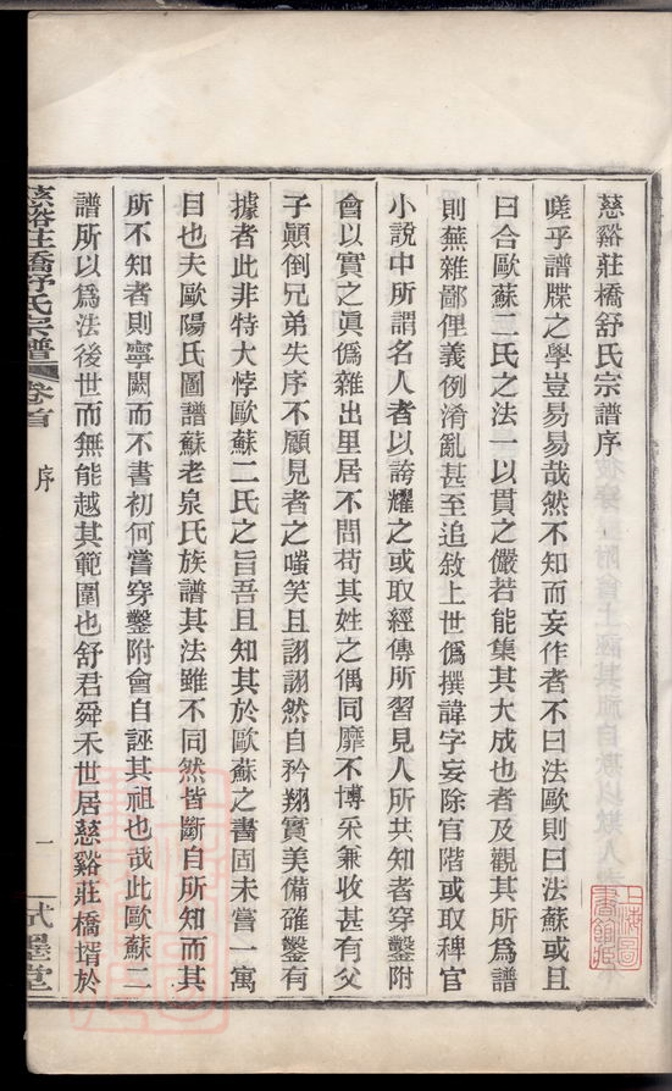 慈谿莊橋舒氏宗譜序
嗟乎譜牒之學豈易易哉然不知而妄作者不曰法歐則曰法蘇或且
曰合歐蘇二氏之法一以貫之儼若能集其大成也者及觀其所爲譜
則蕪雜鄙俚義例淆亂甚至追敘上世僞撰諱字妄除官階或取稗官
小說中所謂名人者以誇耀之或取經傳所習見人所共知者穿鑿附
會以實之眞僞雜出里居不問苟其姓之偶同靡不博采兼收甚有父
子顚倒兄弟失序不顧見者之嗤笑且詡詡然自矜翔實美備確鑿有
據者此非特大悖歐蘇二氏之旨吾且知其於歐蘇之書固未嘗一寓
目也夫歐陽氏圖譜蘇老泉氏族譜其法雖不同然皆斷自所知而其
所不知者則寧闕而不書初何嘗穿鑿附會自誣其祖也哉此歐蘇二
譜所以爲法後世而無能越其範圍也舒君舜禾世居慈谿莊橋壻於
慈谿莊橋舒氏宗譜 卷首 序 一 弎墨堂
上海圖書館藏